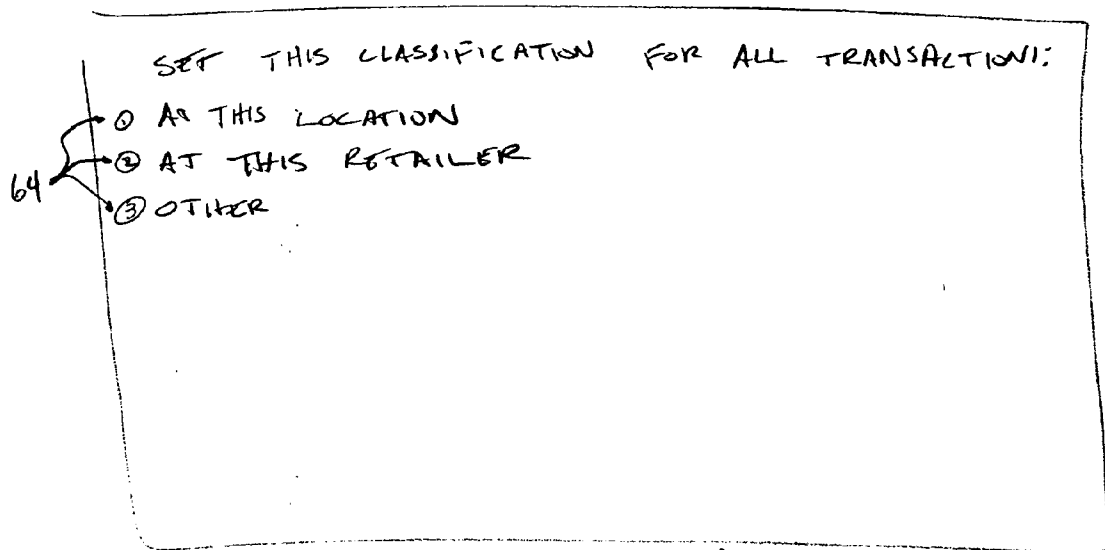 SET THIS CLASSIFICATION FOR ALL TRANSACTIONS:
① AT THIS LOCATION
② AT THIS RETAILER
③ OTHER
64